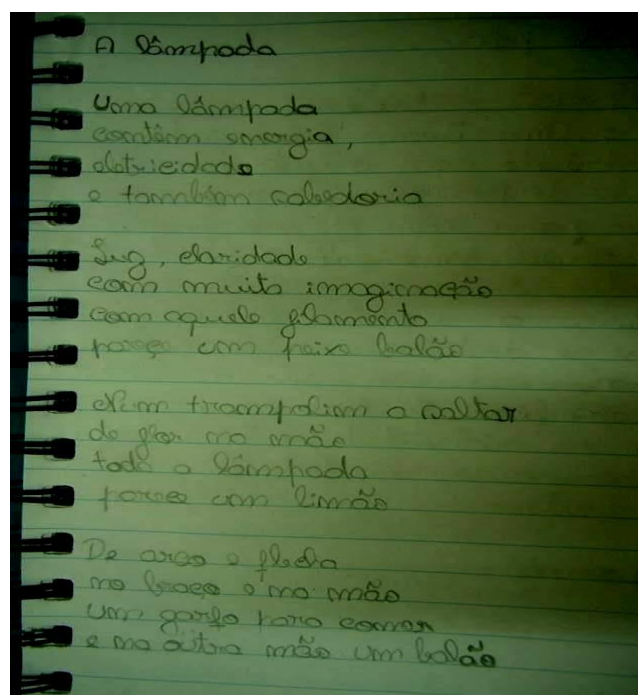 A lâmpada
Uma lâmpada
contêm energia,
eletricidade
e também sabedoria
Luz, claridade
com muita imaginação
com aquele filamento
parece um peixe balão
Num trampolim a saltar
de flor na mão
toda a lâmpada
parece um limão
De arco e flecha
no braço e na mão
um garfo para comer
e na outra mão um balão